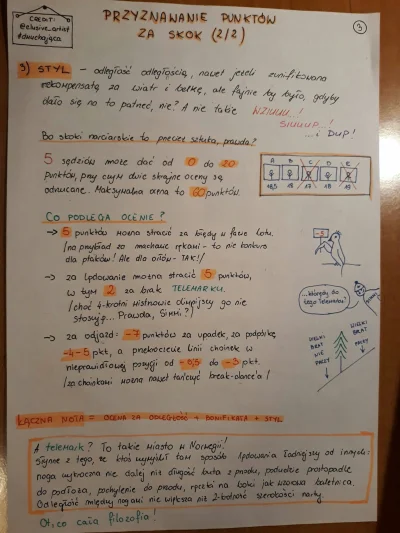 CREDIT:
@elusive_artist
#dmuchajaca
PRZYZNAWANIE PUNKTÓW
ZA SKOK (2/2)
3
3) STYL - odległość odległością, nawet jeżeli zunifikowana
rekompensatą za wiatr i belkę, ale fajnie by było, gdyby
dało się na to patrzeć, nie? A nie takie WZIUUU...!
SIUUUP...!
...! DUP!
Bo skoki narciarskie to przecież sztuka, prawda?
5 sędziów może dać od 0 do 20
punktów, przy czym dwie skrajne oceny są
odrzucane. Maksymalna ocena to 60 punktów.
A B C D E
18,5 18 17 18 19
CO PODLEGA OCENIE?
→ 5 punktów można stracić za błędy w fazie lotu.
/na przykład za machanie rękami - to nie konkurs
dla ptaków! Ale dla orłów - TAK!/
→ za lądowanie można stracić 5 punktów,
w tym 2 za brak TELEMARKU.
/choć 4-krotni mistrzowie olimpijscy go nie
stosują... Prawda, Simmi?/
...którędy do
tego Telemarku?
→ za odjazd: -7 punktów za upadek, za podpórkę
-4-5 pkt, a przekroczenie linii choinek w
nieprawidłowej pozycji od -0,5 do -3 pkt.
/za choinkami można nawet tańczyć break-dance'a/
WIELKI
BRAT
NIE
PACZY
WIELKI
BRAT
PACZY
ŁĄCZNA NOTA = OCENA ZA ODLEGŁOŚĆ + BONIFIKATA + STYL
A telemark? To takie miasto w Norwegii!
Słynie z tego, że ktoś wymyślił tam sposób lądowania ładniejszy od innych:
noga wykroczna nie dalej niż długość buta z przodu, podudzie prostopadle
do podłoża, pochylenie do przodu, rączki na boki jak wzorowa baletnica.
Odległość między nogami nie większa niż 2-krotność szerokości narty.
Ot, co cała filozofia!